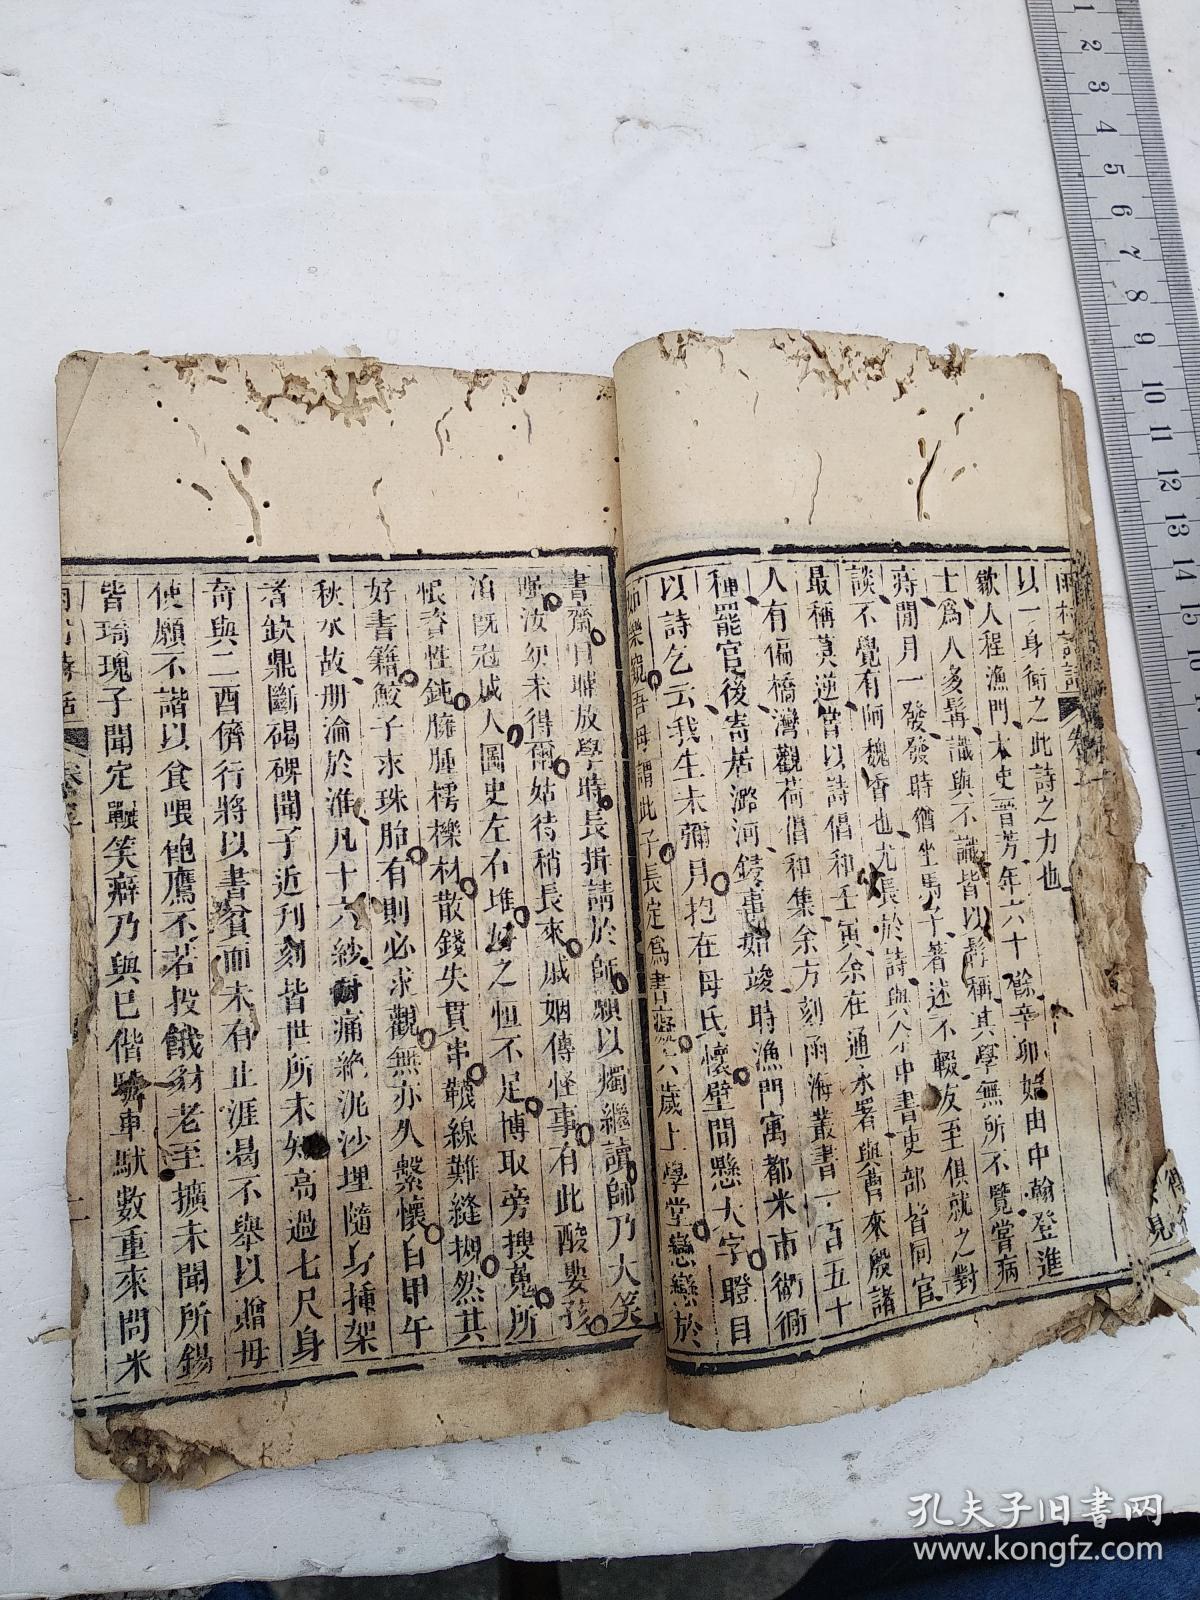 雨村詩話 卷十
以一身衛之此詩之力也
歙人程漁門太史晉芳年六十餘辛卯始由中翰登進
士爲人多髯識與不識皆以髯稱其學無所不覽嘗病
痔閒月一發發時猶坐馬子著述不輟友至俱就之對
談不覺有阿魏香也尤長於詩與余中書吏部皆同官
最稱莫逆嘗以詩倡和壬寅余在通永署與曹來殷諸
人有偏橋灣觀荷倡和集余方刻函海叢書一百五十
種罷官後寄居潞河鐫事如竣時漁門寓都米市衚衕
以詩乞云我生未彌月抱在母氏懷壁間懸大字瞪目
如樂窺吾母謂此子長定爲書癡六歲上學堂戀戀於
書齋日晡放學時長揖請於師願以燭繼讀師乃大笑
嗔汝幼未得爾姑待稍長來戚姻傳怪事有此酸嬰孩
洎既冠成人圖史左右堆好之恒不足博取旁搜蒐所
恨吝性鈍臃腫樗櫟材散錢失貫串韈線難縫 然其
好書籍鮫子求珠胎有則必求觀無亦久繫懷自甲午
秋水故册淪於淮凡十六紗廚痛絶泥沙埋隨身揰架
者缺鼎斷碣碑聞子近刊刻皆世所未知高過七尺身
奇與二酉儕行將以書貧而未有止涯曷不舉以贈毋
使願不諧以食喂飽鷹不若投餓豺老至擴未聞所錫
皆琦瑰子聞定囅笑癖乃與巳偕 車馱數重來問米
雨村詩話 卷
孔夫子旧书网
www.kongfz.com
1 2 3 4 5 6 7 8 9 10 11 12 13 14 15 16